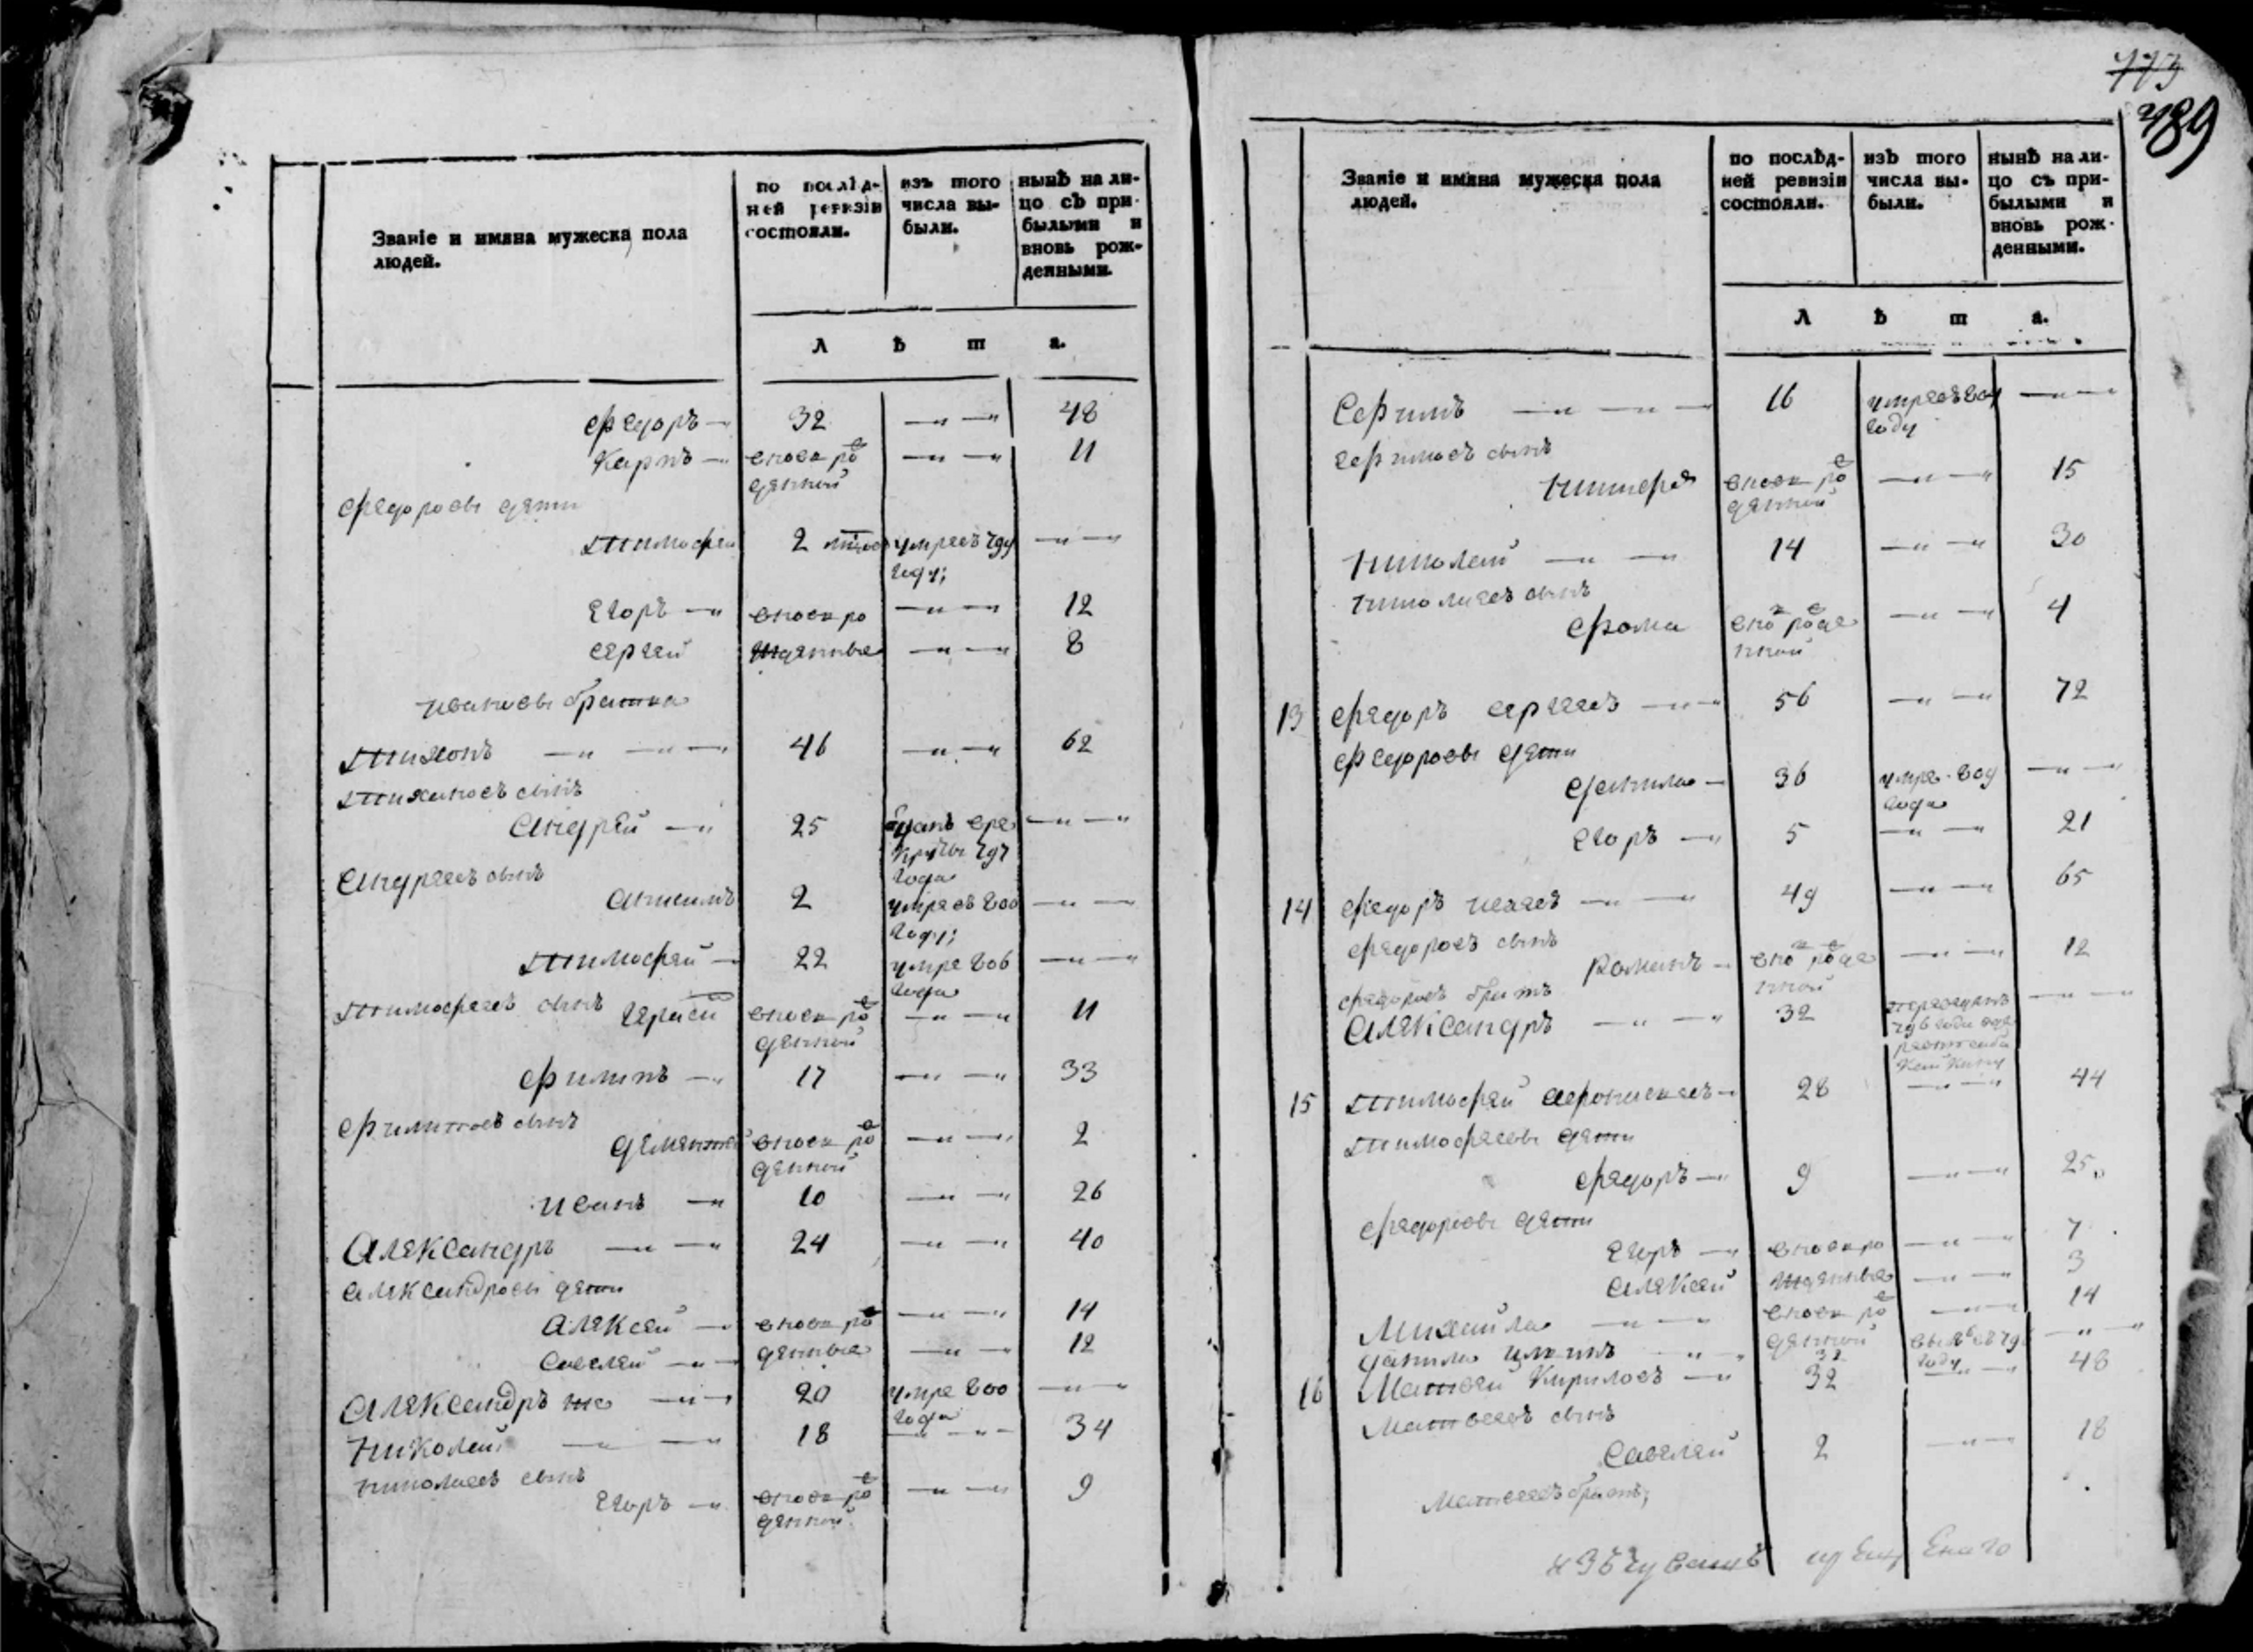 773
489
Званіе и имяна мужеска пола людей.
по послѣд-
ней ревизіи
состояли.
изъ того
числа вы-
были.
нынѣ на ли-
цо съ при-
былыми и
вновь рож-
денными.
Л ѣ т а.
Федоръ 32 48
Карпъ вновь ро 11
жденной
Федоровы дети
Тимофей 2 умре въ 799
году;
Егоръ вновь ро 12
Сергей жденные 8
Ивановы братья
Тихонъ 46 62
Тихоновъ сынъ
Андрей 25 отданъ вре
круты 797
года
Андреевъ сынъ
2 умре въ 800
году;
Тимофей 22 умре 806
года
Тимофеевъ сынъ Гераси вновь ро 11
жденной
Филипъ 17 33
Филиповъ сынъ
Дементей вновь ро 2
жденной
Иванъ 10 26
Александръ 24 40
Александровы дети
Алексей вновь ро 14
Савелей жденные 12
Александръ же 20 умре 800
года
Николай 18 34
Николаевъ сынъ
Егоръ вновь ро 9
жденной
Званіе и имяна мужеска пола
людей.
по послѣд-
ней ревизіи
состояли.
изъ того
числа вы-
были.
нынѣ на ли-
цо съ при-
былыми и
вновь рож-
денными.
Л ѣ т а.
Ефимъ 16 умре въ 804
году
Ефимовъ сынъ
Никифоръ вновь ро 15
жденной
Николай 14 30
Николаевъ сынъ
Фома вно рожде 4
нной
13 Федоръ Сергеевъ 56 72
Федоровы дети
Данило 36 умре 809
года
Егоръ 5 21
14 Федоръ Исаевъ 49 65
Федоровъ сынъ
Романъ вно рожде 12
нной
Федоровъ братъ
Александръ 32
796 года
15 Тимофей Афонасьевъ 28 44
Тимофеевы дети
Федоръ 9 25
Федоровы дети
Егоръ вновь ро 7
Алексей жденные 3
Михайла вновь ро 14
жденной
Данило
году
16 Матвей Кириловъ 32 48
Матвеевъ сынъ
Савелей 2 18
Матвеевъ братъ;